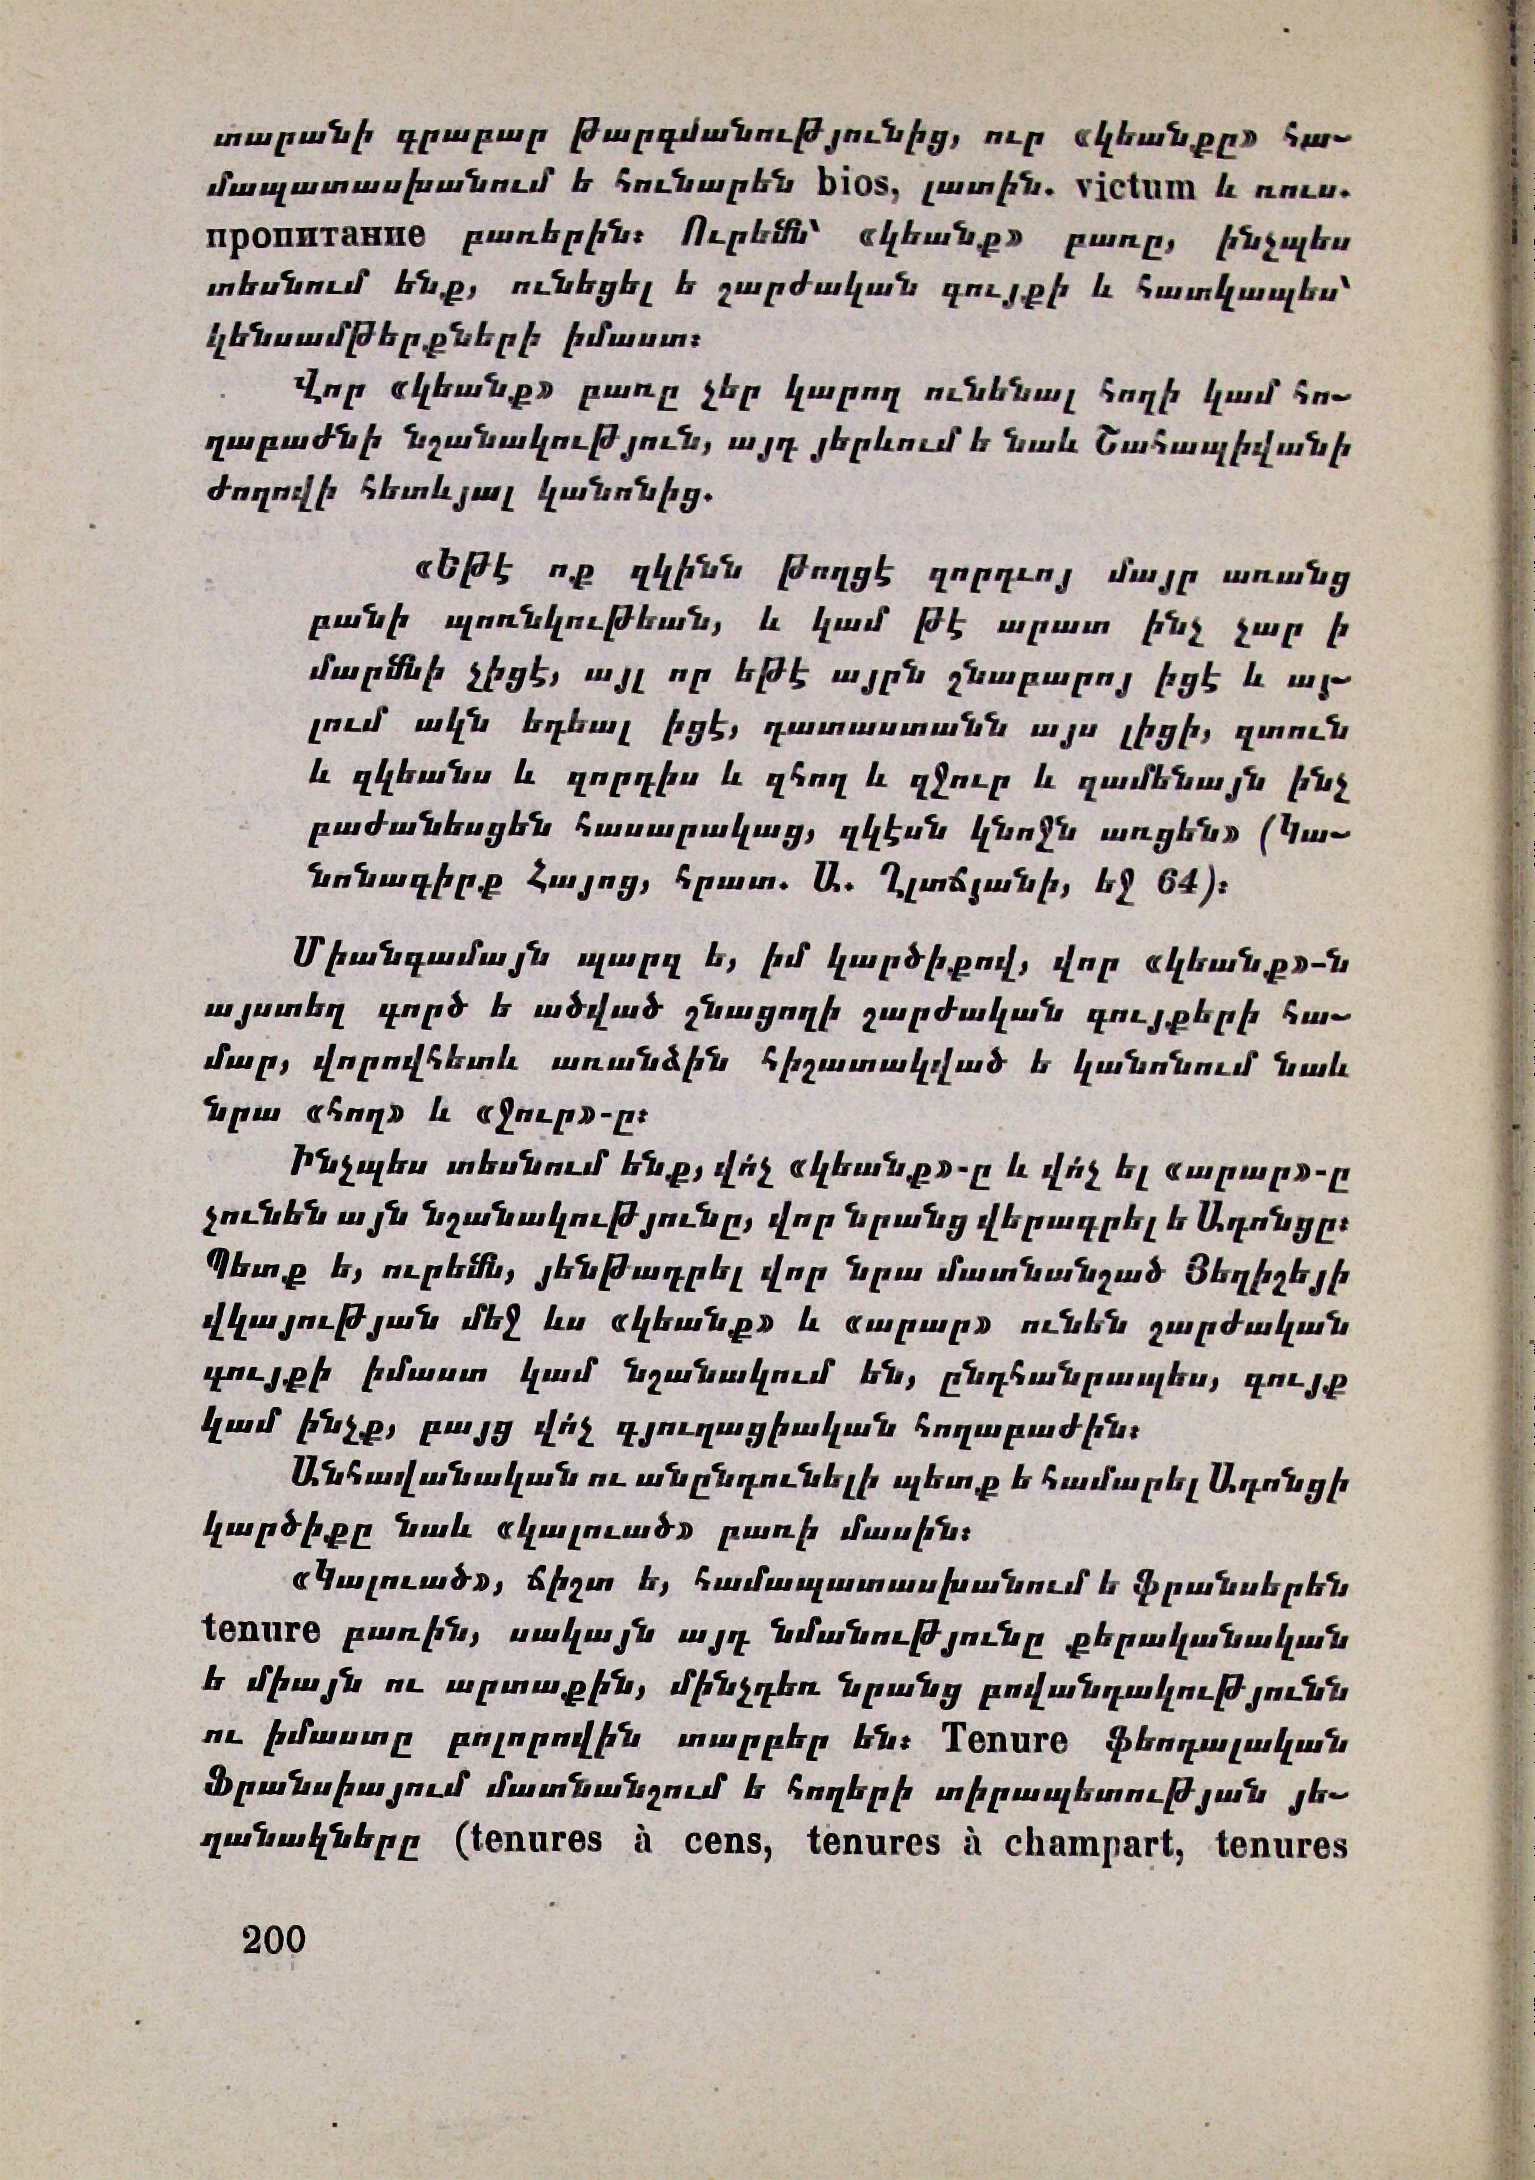 տարանի գրաբար թարգմանությունից, ուր «կեանքը» հա-
մապատասխանում ե հունարեն bios, լատին. victum և ռուս.
пропитание բառերին։ Ուրեմն՝ «կեանք» բառը, ինչպես
տեսնում ենք, ունեցել ե շարժական գույքի և հատկապես՝
կենսամթերքների իմաստ։
Վոր «կեանք» բառը չեր կարող ունենալ հողի կամ հո-
ղաբաժնի նշանակություն, այդ յերևում ե նաև Շահապիվանի
ժողովի հետևյալ կանոնից.
«Եթէ ոք զկինն թողցէ զորդւոյ մայր առանց
բանի պոռնկութեան, և կամ թէ արատ ինչ չար ի
մարմնի չիցէ, այլ որ եթէ այրն շնաբարոյ իցէ և այ-
լում ակն եդեալ իցէ, դատաստանն այս լիցի, զտուն
և զկեանս և զորդիս և զհող և զջուր և զամենայն ինչ
բաժանեսցեն հասարակաց, զկէսն կնոջն առցեն» (Կա-
նոնագիրք Հայոց, հրատ. Ա. Ղլտճյանի, եջ 64)։
Միանգամայն պարզ ե, իմ կարծիքով, վոր «կեանք»-ն
այստեղ գործ ե ածված շնացողի շարժական գույքերի հա-
մար, վորովհետև առանձին հիշատակված ե կանոնում նաև
նրա «հող» և «ջուր»-ը։
Ինչպես տեսնում ենք, վո՛չ «կեանք»-ը և վո՛չ ել «արար»-ը
չունեն այն նշանակությունը, վոր նրանց վերագրել ե Ադոնցը։
Պետք ե, ուրեմն, յենթադրել վոր նրա մատնանշած Յեղիշեյի
վկայության մեջ ևս «կեանք» և «արար» ունեն շարժական
գույքի իմաստ կամ նշանակում են, ընդհանրապես, գույք
կամ ինչք, բայց վո՛չ գյուղացիական հողաբաժին։
Անհավանական ու անընդունելի պետք ե համարել Ադոնցի
կարծիքը նաև «կալուած» բառի մասին։
«Կալուած», ճիշտ ե, համապատասխանում ե ֆրանսերեն
tenure բառին, սակայն այդ նմանությունը քերականական
ե միայն ու արտաքին, մինչդեռ նրանց բովանդակությունն
ու իմաստը բոլորովին տարբեր են։ Tenure ֆեոդալական
Ֆրանսիայում մատնանշում ե հողերի տիրապետության յե-
ղանակները (tenures à cens, tenures à champart, tenures
200